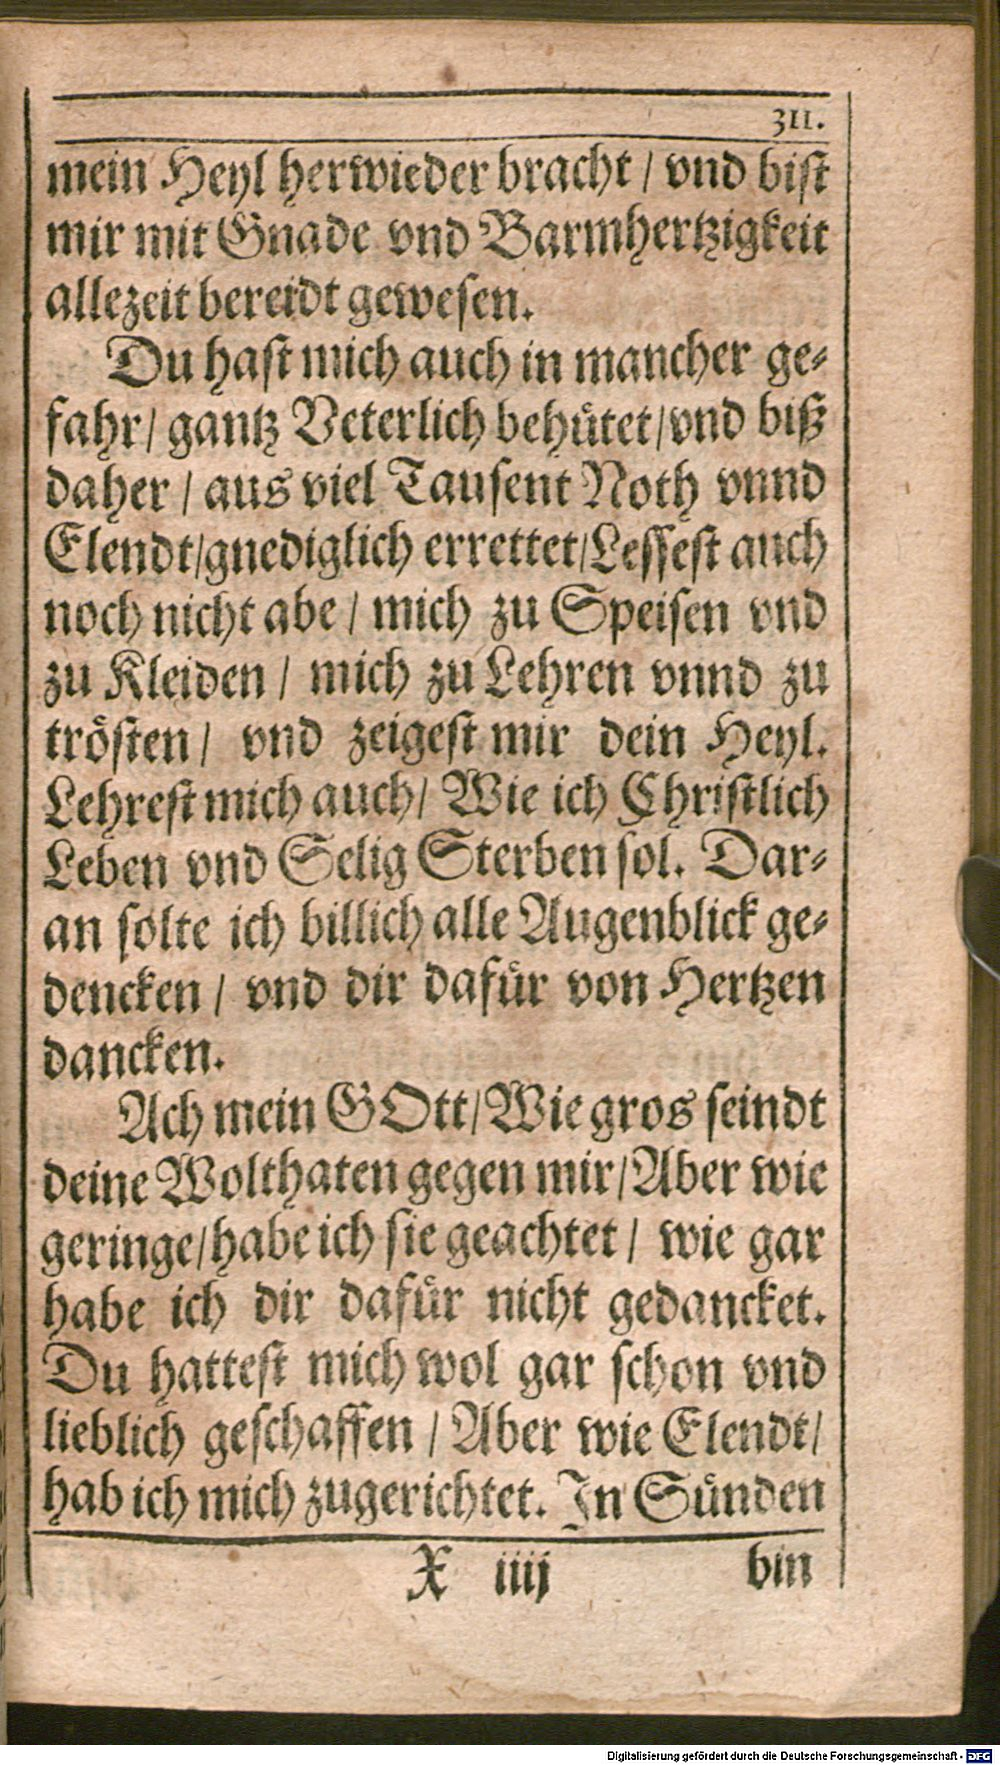 311.
mein Heyl herwieder bracht / vnd bist
mir mit Gnade vnd Barmhertzigkeit
allezeit bereidt gewesen.
Du hast mich auch in mancher ge-
fahr / gantz Veterlich behütet / vnd biß
daher / aus viel Tausent Noth vnnd
Elendt / gnediglich errettet / Lessest auch
noch nicht abe / mich zu Speisen vnd
zu Kleiden / mich zu Lehren vnnd zu
trösten / vnd zeigest mir dein Heyl.
Lehrest mich auch / Wie ich Christlich
Leben vnd Selig Sterben sol. Dar-
an solte ich billich alle Augenblick ge-
dencken / vnd dir dafür von Hertzen
dancken.
Ach mein GOtt / Wie gros seindt
deine Wolthaten gegen mir / Aber wie
geringe / habe ich sie geachtet / wie gar
habe ich dir dafür nicht gedancket.
Du hattest mich wol gar schon vnd
lieblich geschaffen / Aber wie Elendt /
hab ich mich zugerichtet. In Sünden
X iiij bin
Digitalisierung gefördert durch die Deutsche Forschungsgemeinschaft - DFG